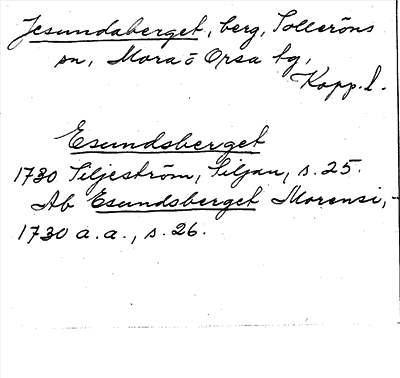 Jesundaberget, berg, Solleröns
sn, Mora o Orsa tg,
Kopp. l.
Esundsberget
1730 Siljeström, Siljan, s. 25.
Ab Esundsberget Morensi,-
1730 a. a., s. 26.